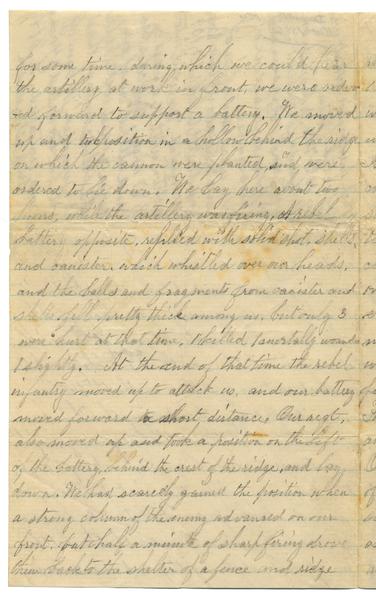 for some time, during which we could hear
the artillery at work in front, we were order
-ed forward to support a battery. We moved
up and took position in a hollow behind the ridge
on which the cannon were planted, and were
ordered to lie down. We lay here about two
hours, while the artillery was firing. A rebel
battery opposite, replied with solid shot, shell,
and canister, which whistled over our heads,
and the balls and fragments from canister and
shells fell pretty thick among us, but only 3
were hurt at that time, 1 killed 1 mortally wounded
1 slightly. At the end of that time the rebel
infantry moved up to attack us, and our battery
moved forward a short distance, Our regt,
also moved up and took a position on the left
of the battery, behind the crest of the ridge, and lay
down. We had scarcely gained the position when
a strong column of the enemy advanced on our
front, but half a minute of sharp firing drove
them back to the shelter of a fence and ridge